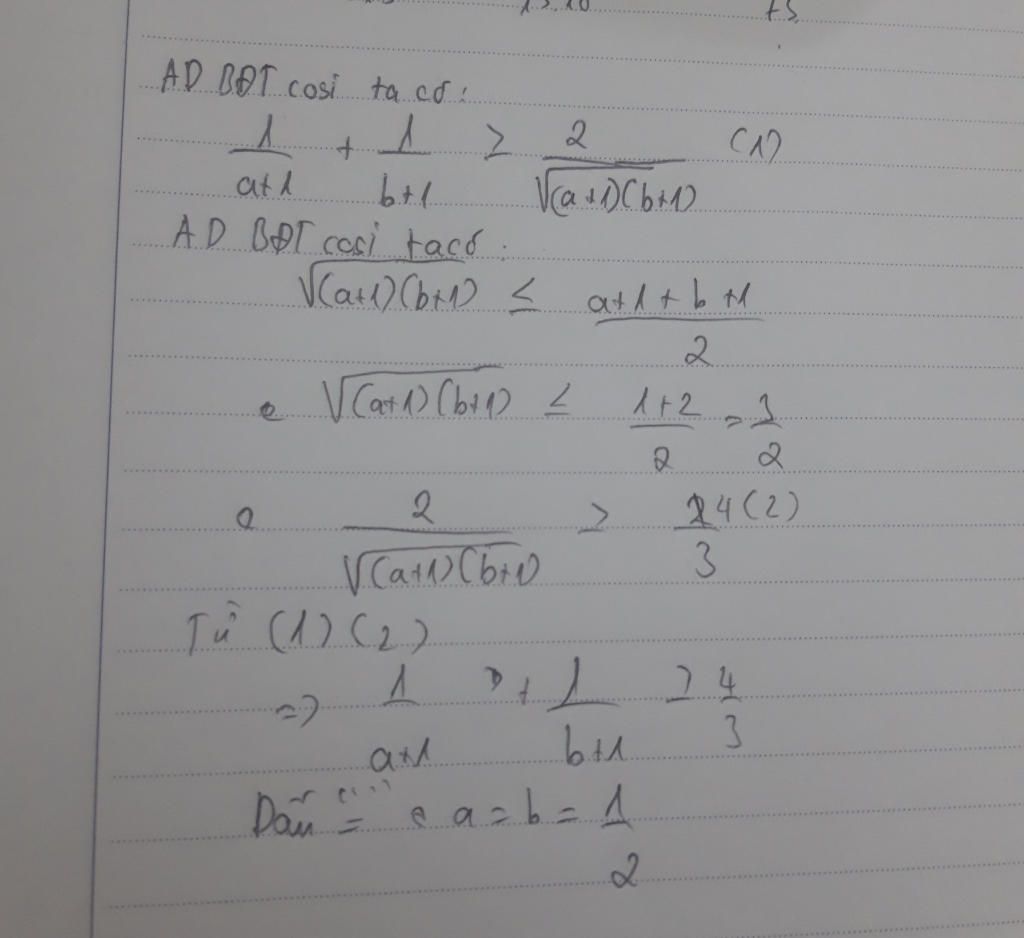 13.10 73
AD BĐT cosi ta có:
1/(a+1) + 1/(b+1) ≥ 2/√((a+1)(b+1)) (1)
AD BĐT cosi ta có:
√((a+1)(b+1)) ≤ (a+1+b+1)/2
√((a+1)(b+1)) ≤ (1+2)/2 = 3/2
2/√((a+1)(b+1)) ≥ 4/3 (2)
Từ (1) (2)
=> 1/(a+1) + 1/(b+1) ≥ 4/3
Dấu "=" a = b = 1/2